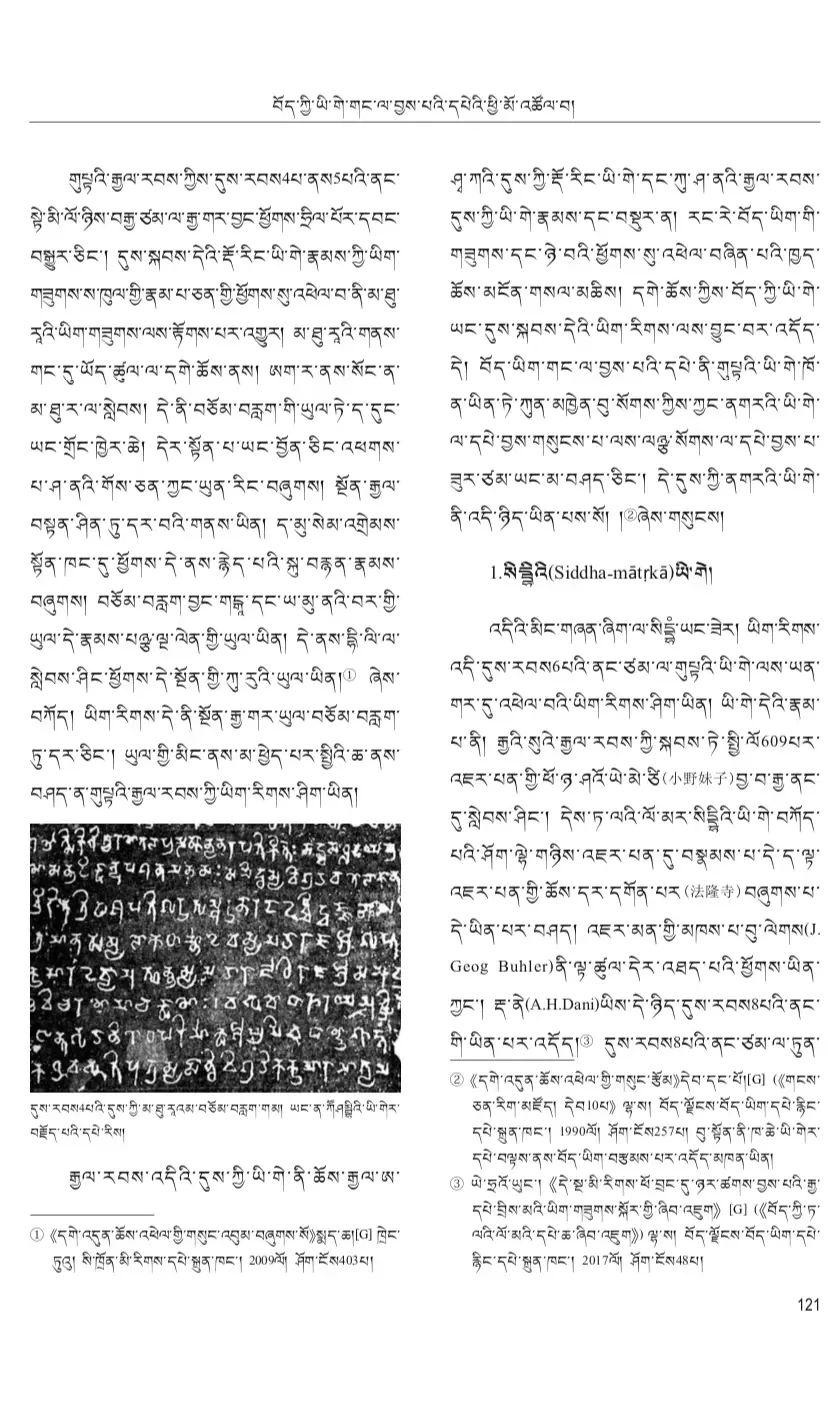 བོད་ཀྱི་ཡི་གེ་གང་ལ་བྱས་པའི་དཔེའི་ཕྱི་མོ་འཚོལ་བ།
གུཔྟའི་རྒྱལ་རབས་ཀྱིས་དུས་རབས4པ་ནས5པའི་ནང་
སྟེ་མི་ལོ་ཉིས་བརྒྱ་ཙམ་ལ་རྒྱ་གར་བྱང་ཕྱོགས་ཧྲིལ་པོར་དབང་
བསྒྱུར་ཅིང་། དུས་སྐབས་དེའི་རྡོ་རིང་ཡི་གེ་རྣམས་ཀྱི་ཡིག
གཟུགས་ས་ཁུལ་གྱི་རྣམ་པ་ཅན་གྱི་ཕྱོགས་སུ་འཕེལ་བ་ནི་མ་ཐུ་
རཱའི་ཡིག་གཟུགས་ལས་རྟོགས་པར་འགྱུར། མ་ཐུ་རཱའི་གནས་
གང་དུ་ཡོད་ཚུལ་ལ་དགེ་ཆོས་ནས། ཨག་ར་ནས་སོང་ན་
མ་ཐུ་ར་ལ་སླེབས། དེ་ནི་བཅོམ་བརླག་གི་ཡུལ་ཏེ་ད་དུང་
ཡང་གྲོང་ཁྱེར་ཆེ། དེར་སྟོན་པ་ཡང་བྱོན་ཅིང་འཕགས་
པ་ཤ་ནའི་གོས་ཅན་ཀྱང་ཡུན་རིང་བཞུགས། སྔོན་རྒྱལ་
བསྟན་ཤིན་ཏུ་དར་བའི་གནས་ཡིན། ད་མུ་སེམ་འགྲེམས་
སྟོན་ཁང་དུ་ཕྱོགས་དེ་ནས་རྙེད་པའི་སྐུ་བརྙན་རྣམས་
བཞུགས། བཅོམ་བརླག་བྱང་གངྒཱ་དང་ཡ་མུ་ནའི་བར་གྱི་
ཡུལ་དེ་རྣམས་པཉྩ་ལ་ལེན་གྱི་ཡུལ་ཡིན། དེ་ནས་དྷི་ལི་ལ་
སླེབས་ཤིང་ཕྱོགས་དེ་སྔོན་གྱི་ཀུ་རུའི་ཡུལ་ཡིན།① ཞེས་
བཀོད། ཡིག་རིགས་དེ་ནི་སྔོན་རྒྱ་གར་ཡུལ་བཅོམ་བརླག་
ཏུ་དར་ཅིང་། ཡུལ་གྱི་མིང་ནས་མ་ཕྱེད་པར་སྤྱིའི་ཆ་ནས་
བཤད་ན་གུཔྟའི་རྒྱལ་རབས་ཀྱི་ཡིག་རིགས་ཤིག་ཡིན།
དུས་རབས4པའི་དུས་ཀྱི་མ་ཐུ་རཱའམ་བཅོམ་བརླག་གམ། ཡང་ན་ཡི་གེར་
བརྗོད་པའི་དཔེ་རིས།
རྒྱལ་རབས་འདིའི་དུས་ཀྱི་ཡི་གེ་ནི་ཆོས་རྒྱལ་ཨ་
① 《དགེ་འདུན་ཆོས་འཕེལ་གྱི་གསུང་འབུམ་བཞུགས་སོ》སྨད་ཆ།[G] ཁྲེང་
ཏུའུ། སི་ཁྲོན་མི་རིགས་དཔེ་སྐྲུན་ཁང་། 2009ལོ། ཤོག་ངོས403པ།
ཤྭ་ཀའི་དུས་ཀྱི་རྡོ་རིང་ཡི་གེ་དང་ཀུ་ཤ་ནའི་རྒྱལ་རབས་
དུས་ཀྱི་ཡི་གེ་རྣམས་དང་བསྡུར་ན། རང་རེ་བོད་ཡིག་གི་
གཟུགས་དང་ཉེ་བའི་ཕྱོགས་སུ་འཕེལ་བཞིན་པའི་ཁྱད་
ཆོས་མངོན་གསལ་མཆིས། དགེ་ཆོས་ཀྱིས་བོད་ཀྱི་ཡི་གེ་
ཡང་དུས་སྐབས་དེའི་ཡིག་རིགས་ལས་བྱུང་བར་འདོད་
དེ། བོད་ཡིག་གང་ལ་བྱས་པའི་དཔེ་ནི་གུཔྟའི་ཡི་གེ་ཁོ་
ན་ཡིན་ཏེ་ཀུན་མཁྱེན་བུ་སོགས་ཀྱིས་ཀྱང་ནགརའི་ཡི་གེ་
ལ་དཔེ་བྱས་གསུངས་པ་ལས་ལཉྩ་སོགས་ལ་དཔེ་བྱས་པ་
ཟུར་ཙམ་ཡང་མ་བཤད་ཅིང་། དེ་དུས་ཀྱི་ནགརའི་ཡི་གེ་
ནི་འདི་ཉིད་ཡིན་པས་སོ། །②ཞེས་གསུངས།
1.སིདྡྷིའི(Siddha-mātṛkā)ཡི་གེ།
འདིའི་མིང་གཞན་ཞིག་ལ་སིདྡྷཾ་ཡང་ཟེར། ཡིག་རིགས་
འདི་དུས་རབས6པའི་ནང་ཙམ་ལ་གུཔྟའི་ཡི་གེ་ལས་ཡན་
གར་དུ་འཕེལ་བའི་ཡིག་རིགས་ཤིག་ཡིན། ཡི་གེ་དེའི་རྣམ་
པ་ནི། རྒྱའི་སུའེ་རྒྱལ་རབས་ཀྱི་སྐབས་ཏེ་སྤྱི་ལོ609པར་
འཇར་པན་གྱི་ཕོ་ཉ་ཤའོ་ཡེ་མེ་ཙི(小野妹子)བྱ་བ་རྒྱ་ནང་
དུ་སླེབས་ཤིང་། དེས་ཏ་ལའི་ལོ་མར་སིདྡྷིའི་ཡི་གེ་བཀོད་
པའི་ཤོག་ལྷེ་གཉིས་འཇར་པན་དུ་བསྣམས་པ་དེ་ད་ལྟ་
འཇར་པན་གྱི་ཆོས་དར་དགོན་པར(法隆寺)བཞུགས་པ་
དེ་ཡིན་པར་བཤད། འཇར་མན་གྱི་མཁས་པ་བུ་ལེགས(J.
Geog Buhler)ནི་ལྟ་ཚུལ་དེར་འཐད་པའི་ཕྱོགས་ཡིན་
ཀྱང་། རྡ་ནེ(A.H.Dani)ཡིས་དེ་ཉིད་དུས་རབས8པའི་ནང་
གི་ཡིན་པར་འདོད།③ དུས་རབས8པའི་ནང་ཙམ་ལ་ཏུན་
② 《དགེ་འདུན་ཆོས་འཕེལ་གྱི་གསུང་རྩོམ》དེབ་དང་པོ།[G] (《གངས་
ཅན་རིག་མཛོད། དེབ10པ》 ལྟ་ས། བོད་ལྗོངས་བོད་ཡིག་དཔེ་རྙིང་
དཔེ་སྐྲུན་ཁང་། 1990ལོ། ཤོག་ངོས257པ། བུ་སྟོན་ནི་ཁ་ཆེ་ཡི་གེར་
དཔེ་བལྟས་ནས་བོད་ཡིག་བརྩམས་པར་འདོད་མཁན་ཡིན།
③ ཡེ་ཧྲའོ་ཡུང་། 《དེ་སྔ་མི་རིགས་ཕོ་བྲང་དུ་ཉར་ཚགས་བྱས་པའི་རྒྱ་
དཔེ་བྲིས་མའི་ཡིག་གཟུགས་སྐོར་གྱི་ཞིབ་འཇུག》 [G] (《བོད་ཀྱི་ཏ་
ལའི་ལོ་མའི་དཔེ་ཆ་ཞིབ་འཇུག》) ལྷ་ས། བོད་ལྗོངས་བོད་ཡིག་དཔེ་
རྙིང་དཔེ་སྐྲུན་ཁང་། 2017ལོ། ཤོག་ངོས48པ།
121